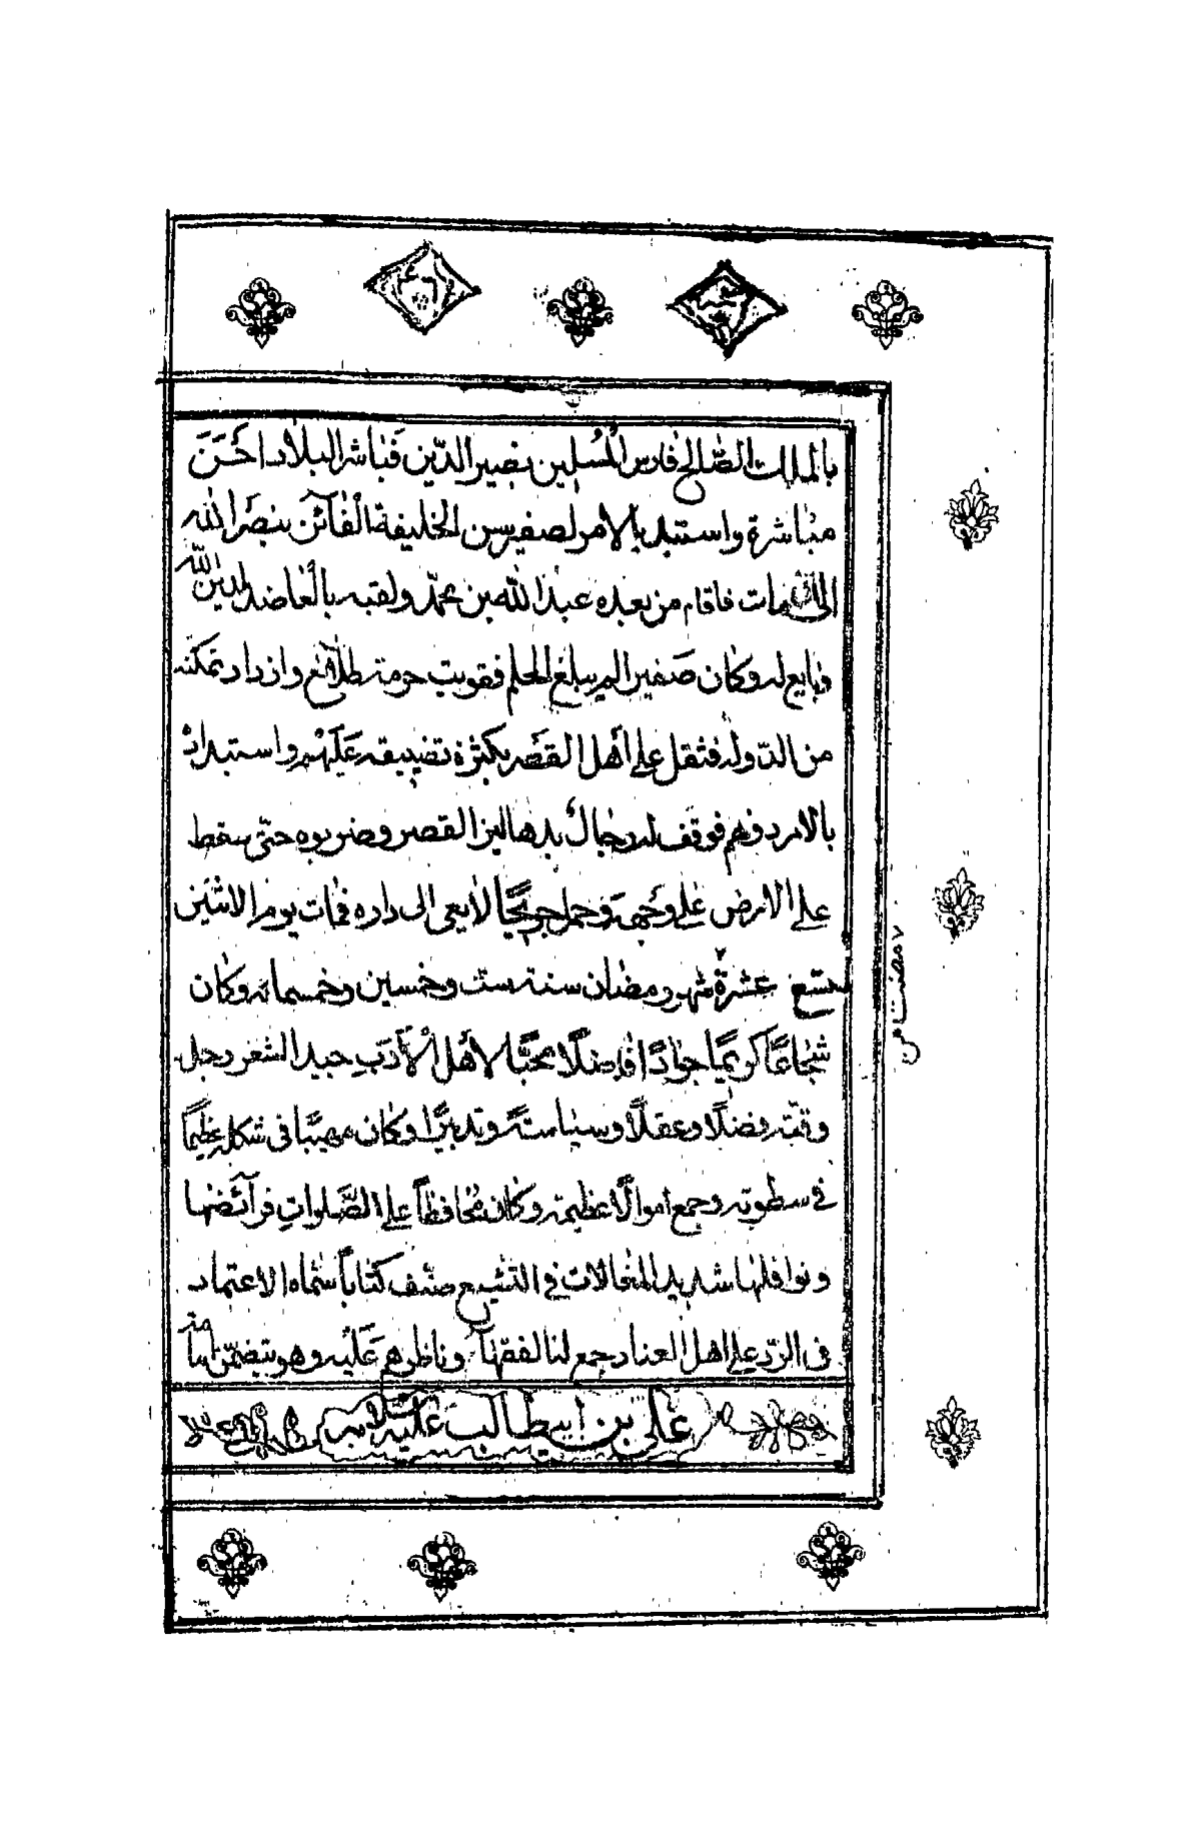 بالملك الصّالح فارس المُسْلِمين نصير الدّين فباشر البلاد احَسَنَ
مباشرة واستبد بالامر لصغر سن الخليفة الفآئز بنصر الله
الى ان مات فاقام من بعده عبد الله بن محمّد ولقبه بالعاضد لدين الله
وبايع له وكان صَغيرا لم يبلغ الحلم فقويت حرمة طلآئع وازداد تمكنه
من الدّوله فثقل على اَهل القصَر بكثرة تضييقه عَلَيْهِم واستبداده
بالامر دونهم فوقف له رجالٌ بدهاليز القصر وضربوه حتّى سقط
على الارض على وَجْهه وحمل جريحًا لا يعى الى داره فمات يوم الاثنين
تسع عشرة شهر رمضان سنة ست وخمسين وخمسمائه وكان
شجاعًا كريمًا جوادًا فاضلًا محبًّا لاَهْل الْاَدَبِ جيد الشعر رجل
وقته فضلًا وعقلًا وسياسةً وتدبيرًا وكان مهيبًا في شكله عظيمًا
في سطوته وجمع اموالًا عظيمة وكان مُحافظاً على الصَّلَواتِ فرآئضها
ونوافلها شديد المغالات في التشيع صنّف كتاباً سمّاه الاعتماد
في الرّد على اهل العناد جمع له الفقهآء وناظرهم عَلَيْه وهو يتضمّن امامة
علي بن ابيطالب عليه السلام